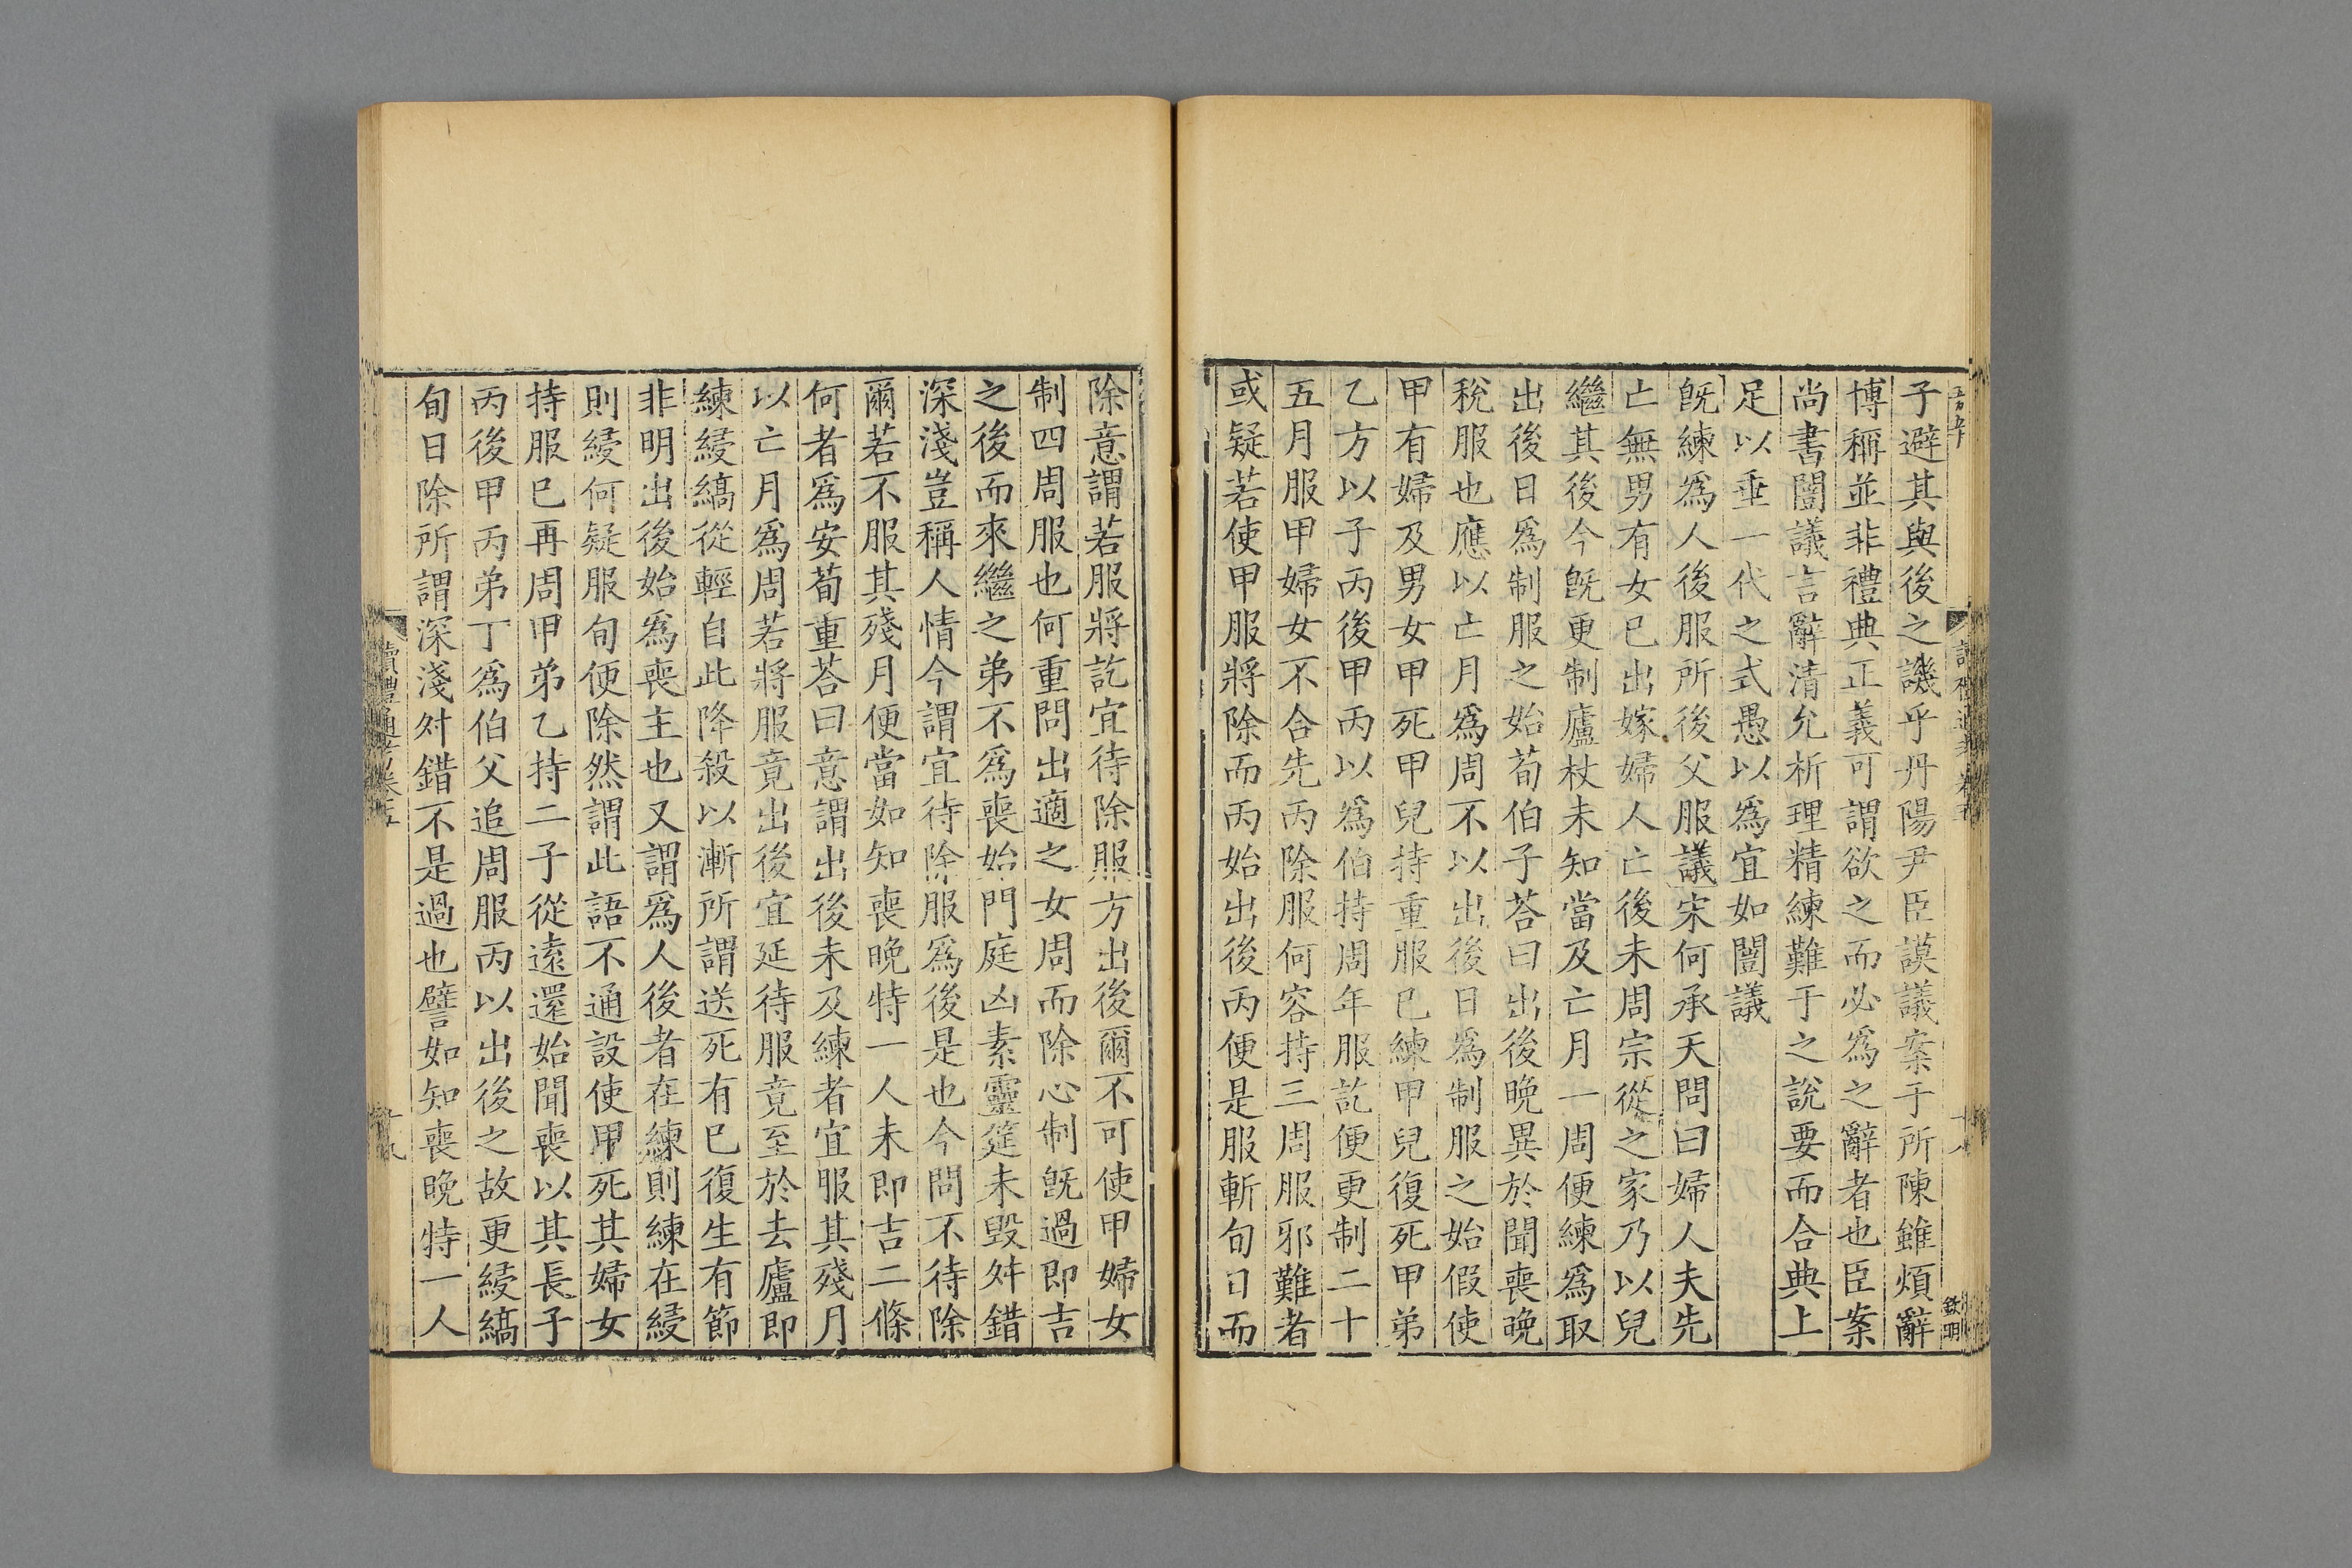 子避其與後之譏乎丹陽尹臣謨議案于所陳雖煩辭
博稱並非禮典正義可謂欲之而必爲之辭者也臣案
尚書闓議言辭清允析理精練難于之說要而合典上
足以垂一代之式愚以爲宜如闓議
旣練爲人後服所後父服議宋何承天問曰婦人夫先
亡無男有女已出嫁婦人亡後未周宗從之家乃以兒
繼其後今旣更制廬杖未知當及亡月一周便練爲取
出後日爲制服之始荀伯子荅曰出後晚異於聞喪晚
稅服也應以亡月爲周不以出後日爲制服之始假使
甲有婦及男女甲死甲兒持重服已練甲兒復死甲弟
乙方以子丙後甲丙以爲伯持周年服訖便更制二十
五月服甲婦女不合先丙除服何容持三周服邪難者
或疑若使甲服將除而丙始出後丙便是服斬旬日而
除意謂若服將訖宜待除服方出後爾不可使甲婦女
制四周服也何重問出適之女周而除心制旣過即吉
之後而來繼之弟不爲喪始門庭凶素靈筵未毀舛錯
深淺豈稱人情今謂宜待除服爲後是也今問不待除
爾若不服其殘月便當如知喪晚特一人未即吉二條
何者爲安荀重荅曰意謂出後未及練者宜服其殘月
以亡月爲周若將服竟出後宜延待服竟至於去廬即
練縵縞從輕自此降殺以漸所謂送死有已復生有節
非明出後始爲喪主也又謂爲人後者在練則練在縵
則縵何疑服旬便除然謂此語不通設使甲死其婦女
持服已再周甲弟乙持二子從遠還始聞喪以其長子
丙後甲丙弟丁爲伯父追周服丙以出後之故更縵縞
旬日除所謂深淺舛錯不是過也譬如知喪晚特一人
讀禮通考卷五